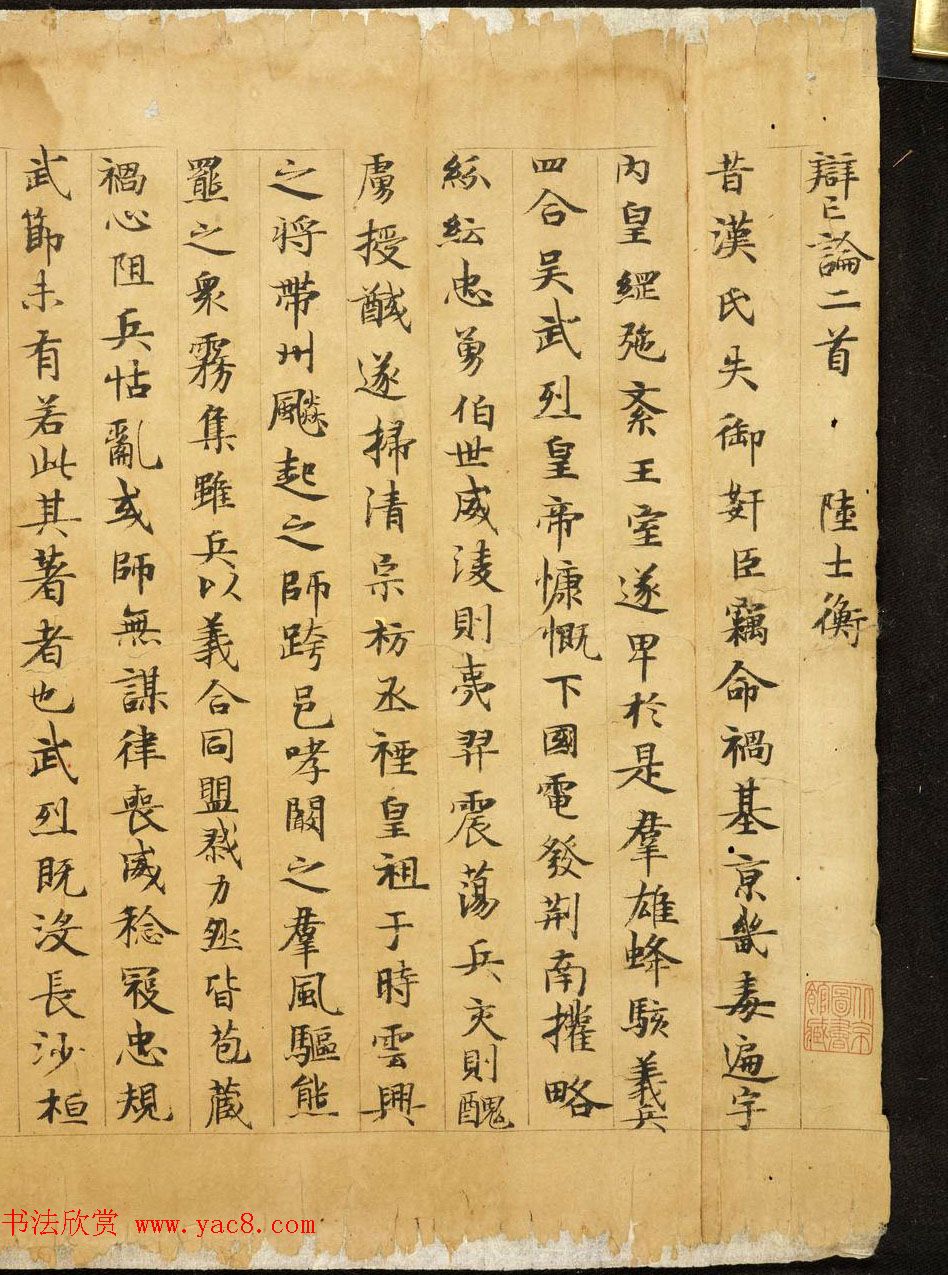 辯亡論二首 陸士衡
昔漢氏失御奸臣竊命禍基京畿毒遍宇
内皇綱弛紊王室遂卑於是羣雄蜂駭義兵
四合吴武烈皇帝慷慨下國電發荆南摧略
紛紜忠勇伯世威淩則夷羿震蕩兵交則醜
虜授馘遂掃清宗枋丞禋皇祖于時雲興
之將帶州飇起之師跨邑哮闞之羣風驅熊
羆之衆霧集雖兵以義合同盟勠力然皆苞藏
禍心阻兵怙亂或師無謀律喪威稔寇忠規
武節未有若此其著者也武烈既没長沙桓
北京圖書館藏
书法欣赏 www.yac8.com